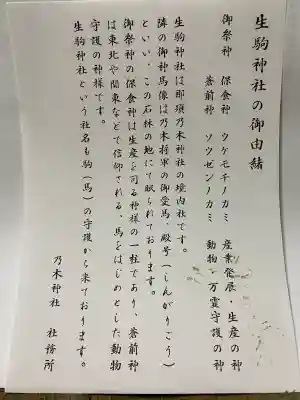 生駒神社の御由緒
御祭神　保食神　ウケモチノカミ　産業発展・生産の神
蒼前神　ソウゼンノカミ　動物・万霊守護の神
生駒神社は那須乃木神社の境内社です。
隣の御神馬像は乃木将軍の御愛馬・殿号（しんがりごう）
といい、この石林の地にて賜られております。
御祭神の保食神は生産を司る神様の一柱であり、蒼前神
は東北や関東などで信仰される、馬をはじめとした動物
守護の神様です。
生駒神社という社名も駒（馬）の守護から来ております。
乃木神社　社務所